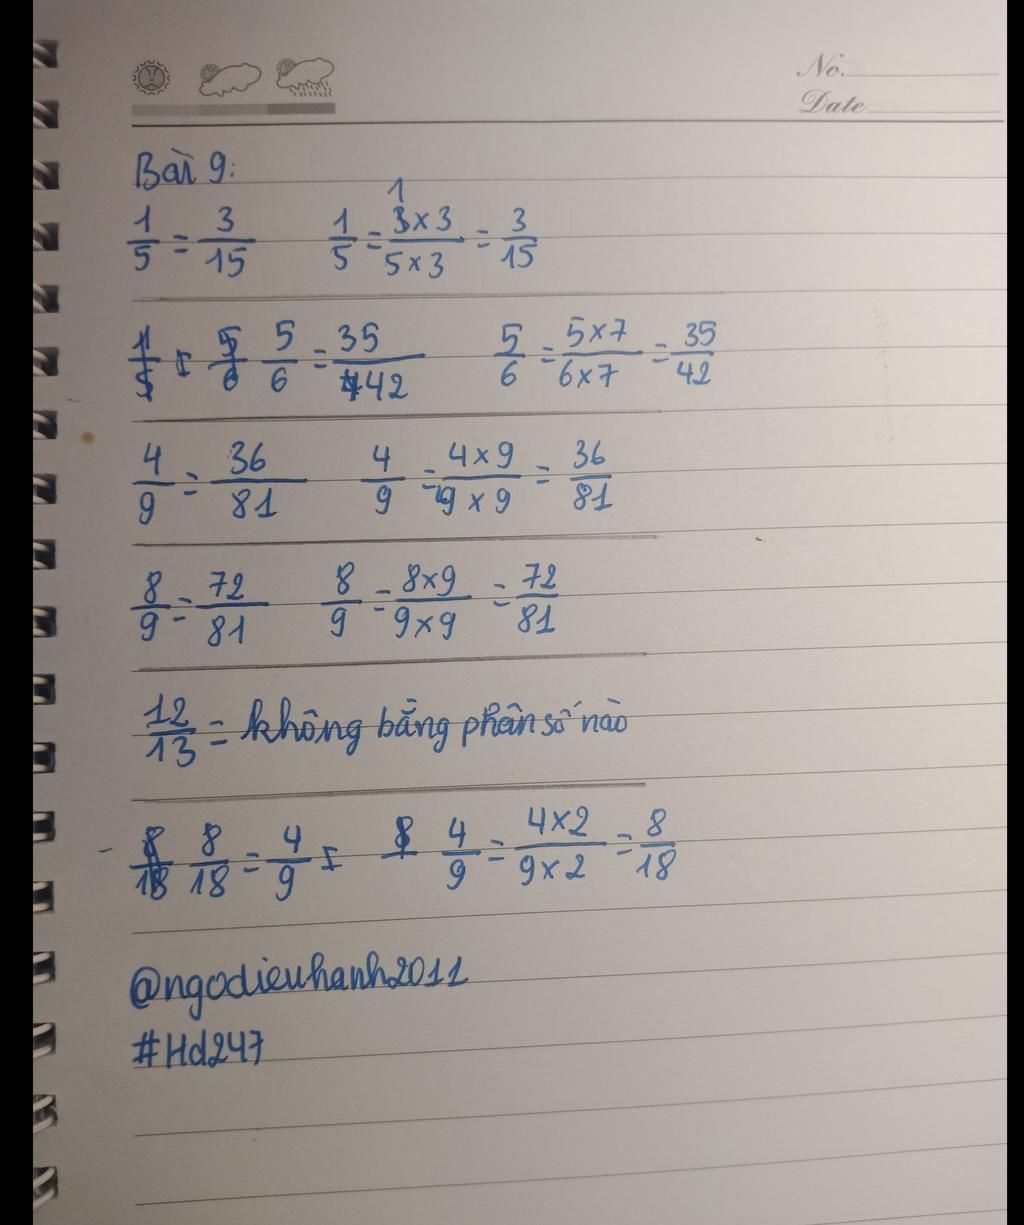 No.
Date
Bài 9:
1/5 = 3/15 1/5 = 1 3x3/5x3 = 3/15
5/6 = 35/42 5/6 = 5x7/6x7 = 35/42
4/9 = 36/81 4/9 = 4x9/9x9 = 36/81
8/9 = 72/81 8/9 = 8x9/9x9 = 72/81
12/13 = không bằng phân số nào
8/18 = 4/9 4/9 = 4x2/9x2 = 8/18
@ngodieuhanh2011
#Hd247